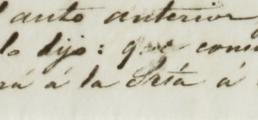 auto anterior
lo dijo: que com
rá á la Sría á